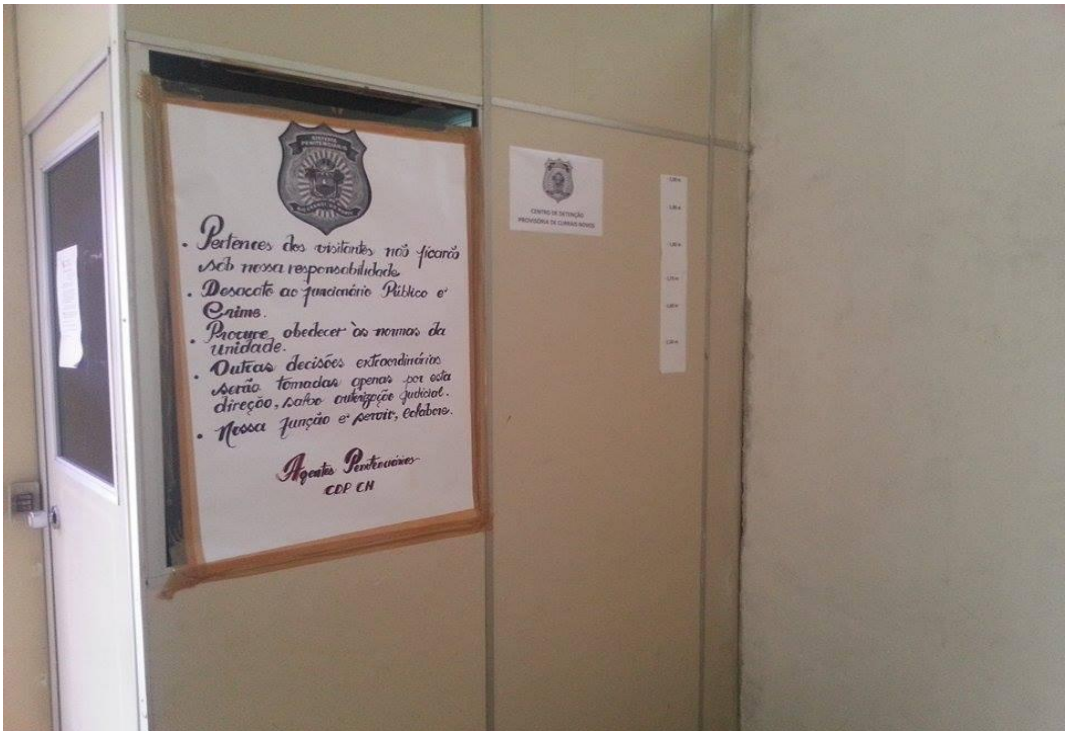 SISTEMA
PENITENCIÁRIO
RIO GRANDE DO NORTE
• Pertences dos visitantes não ficarão
sob nossa responsabilidade.
• Desacato ao funcionário Público é
Crime.
• Procure obedecer às normas da
unidade.
• Outras decisões extraordinárias
serão tomadas apenas por esta
direção, salvo autorização judicial.
• Nossa função é servir, colabore.
Agentes Penitenciários
CDP CN
CENTRO DE DETENÇÃO
PROVISÓRIA DE CURRAIS NOVOS